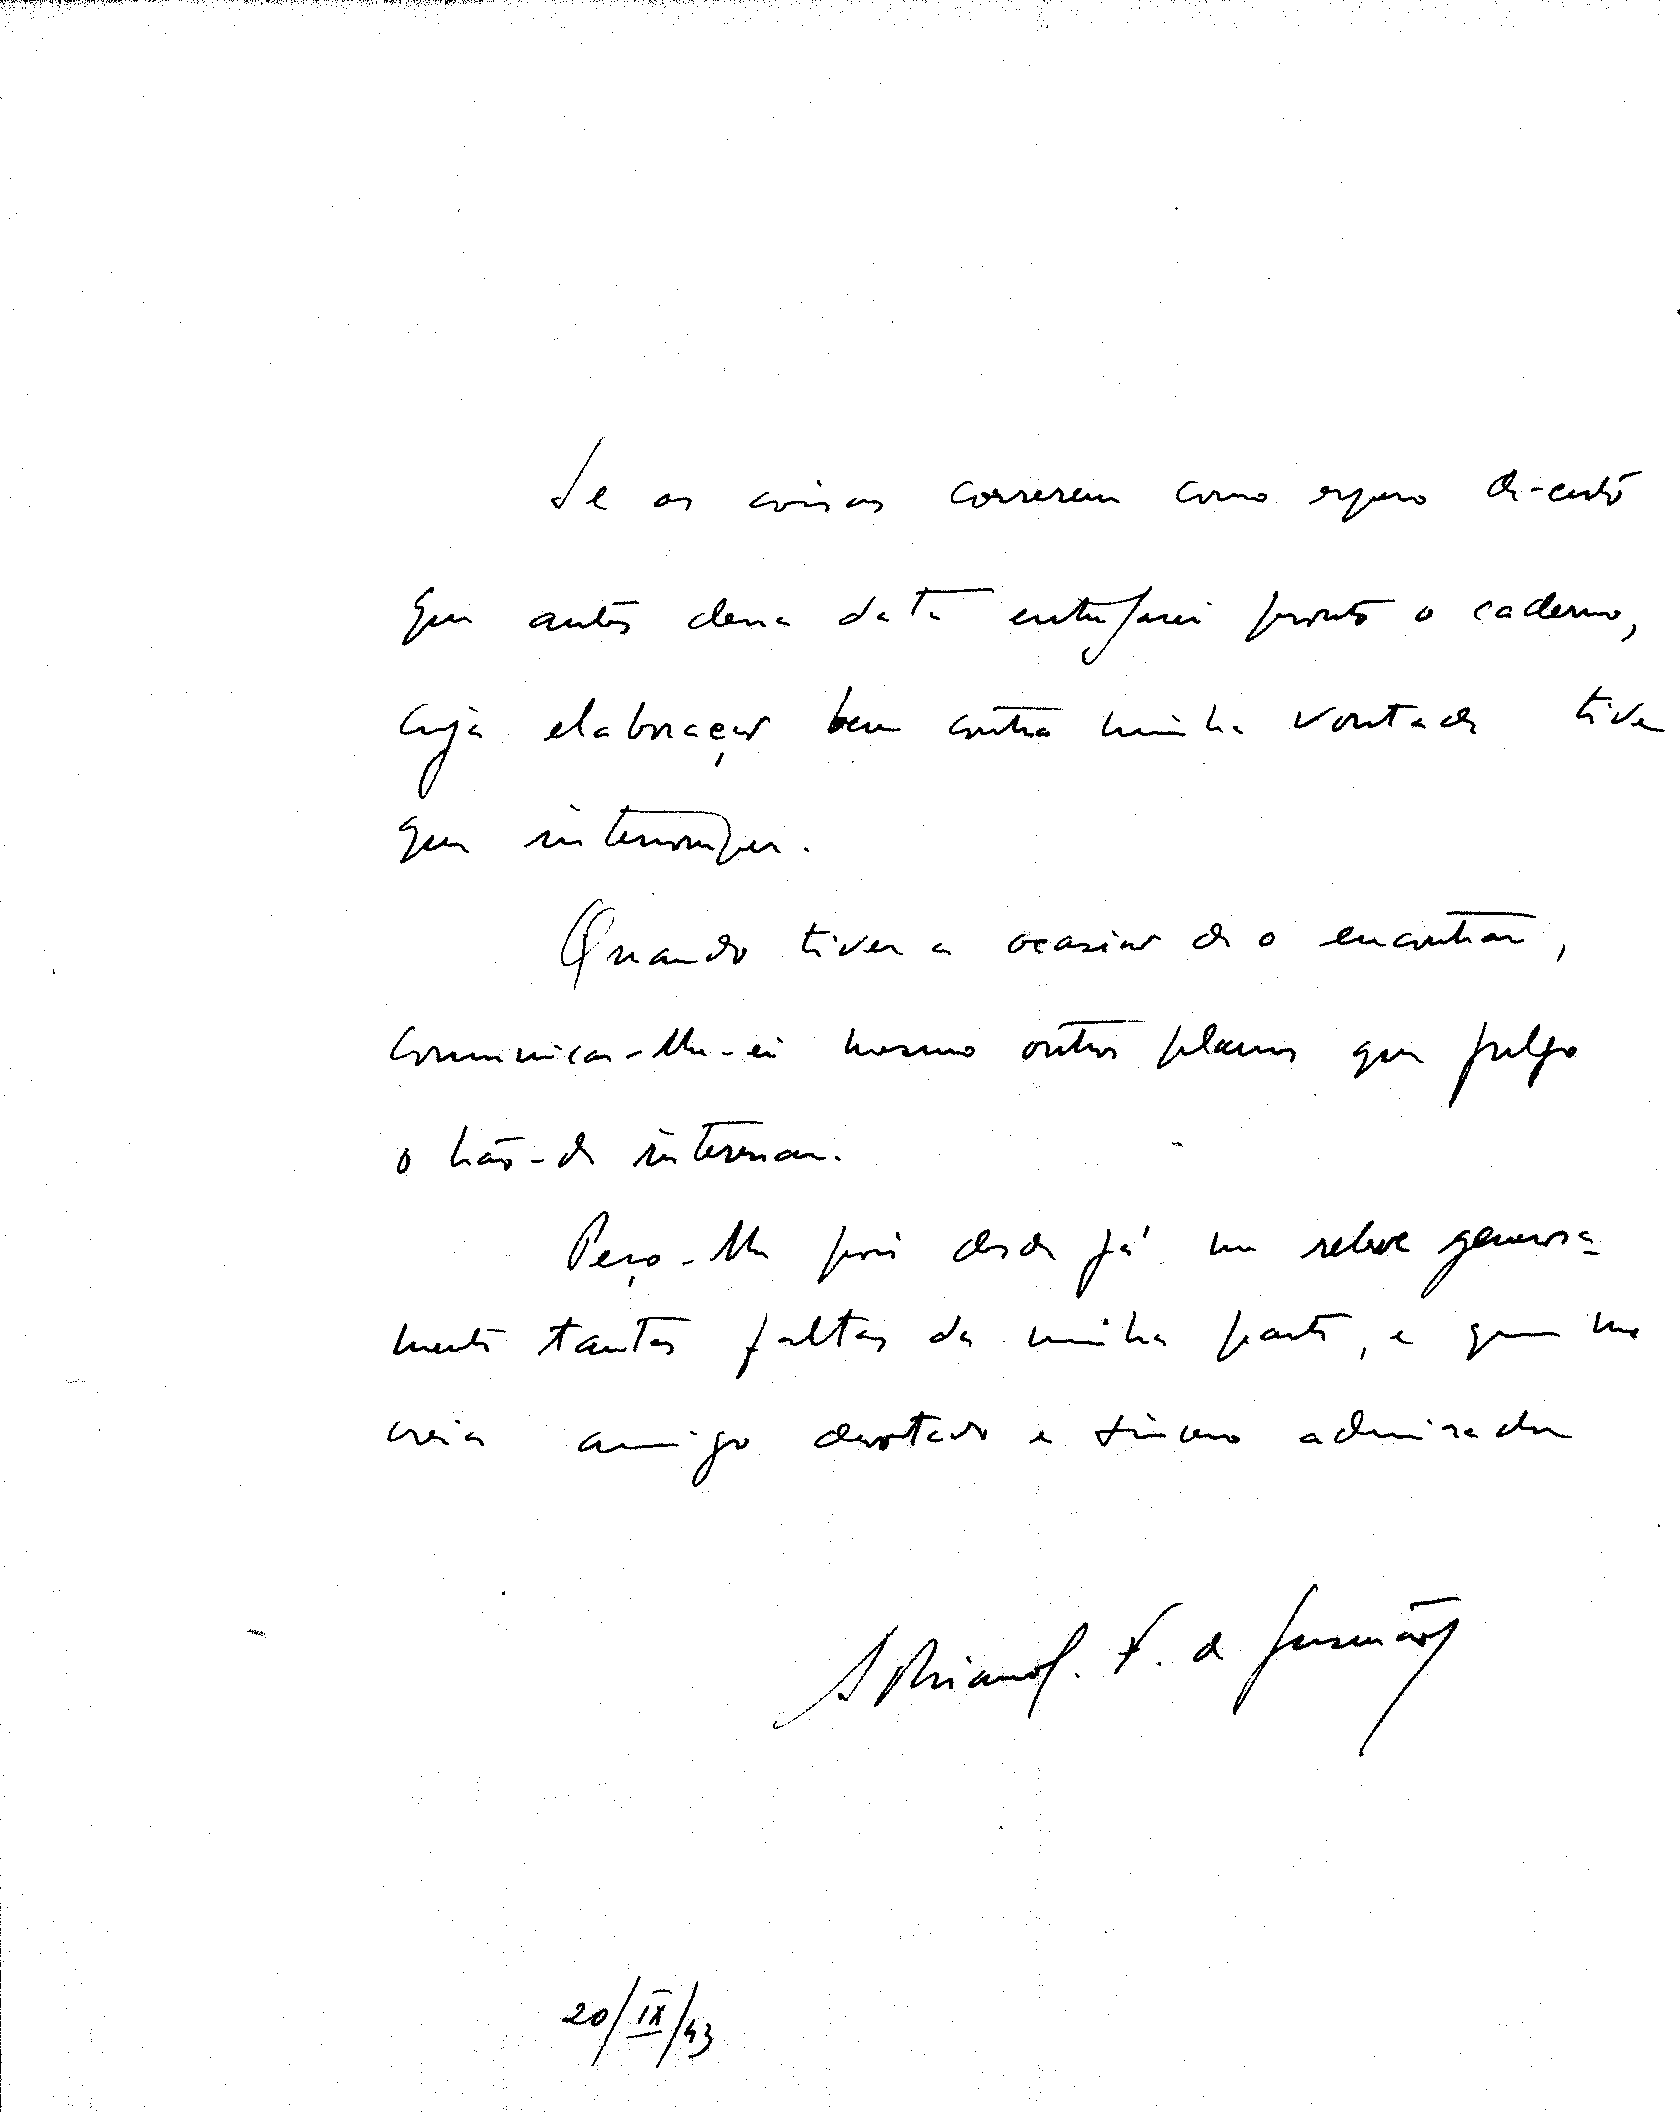 Se as coisas correrem como espero de-certo
que antes dessa data entregarei pronto o caderno,
cuja elaboração bem contra minha vontade tive
que interromper.
Quando tiver a ocasião de o encontrar,
comunicar-lhe-ei mesmo outros planos que julgo
o hão-de interessar.
Peço-lhe pois desde já me releve generosa-
mente tantas faltas da minha parte, e que me
creia amigo devotado e sincero admirador
Adriano. F. de Gusmão
20/IX/43